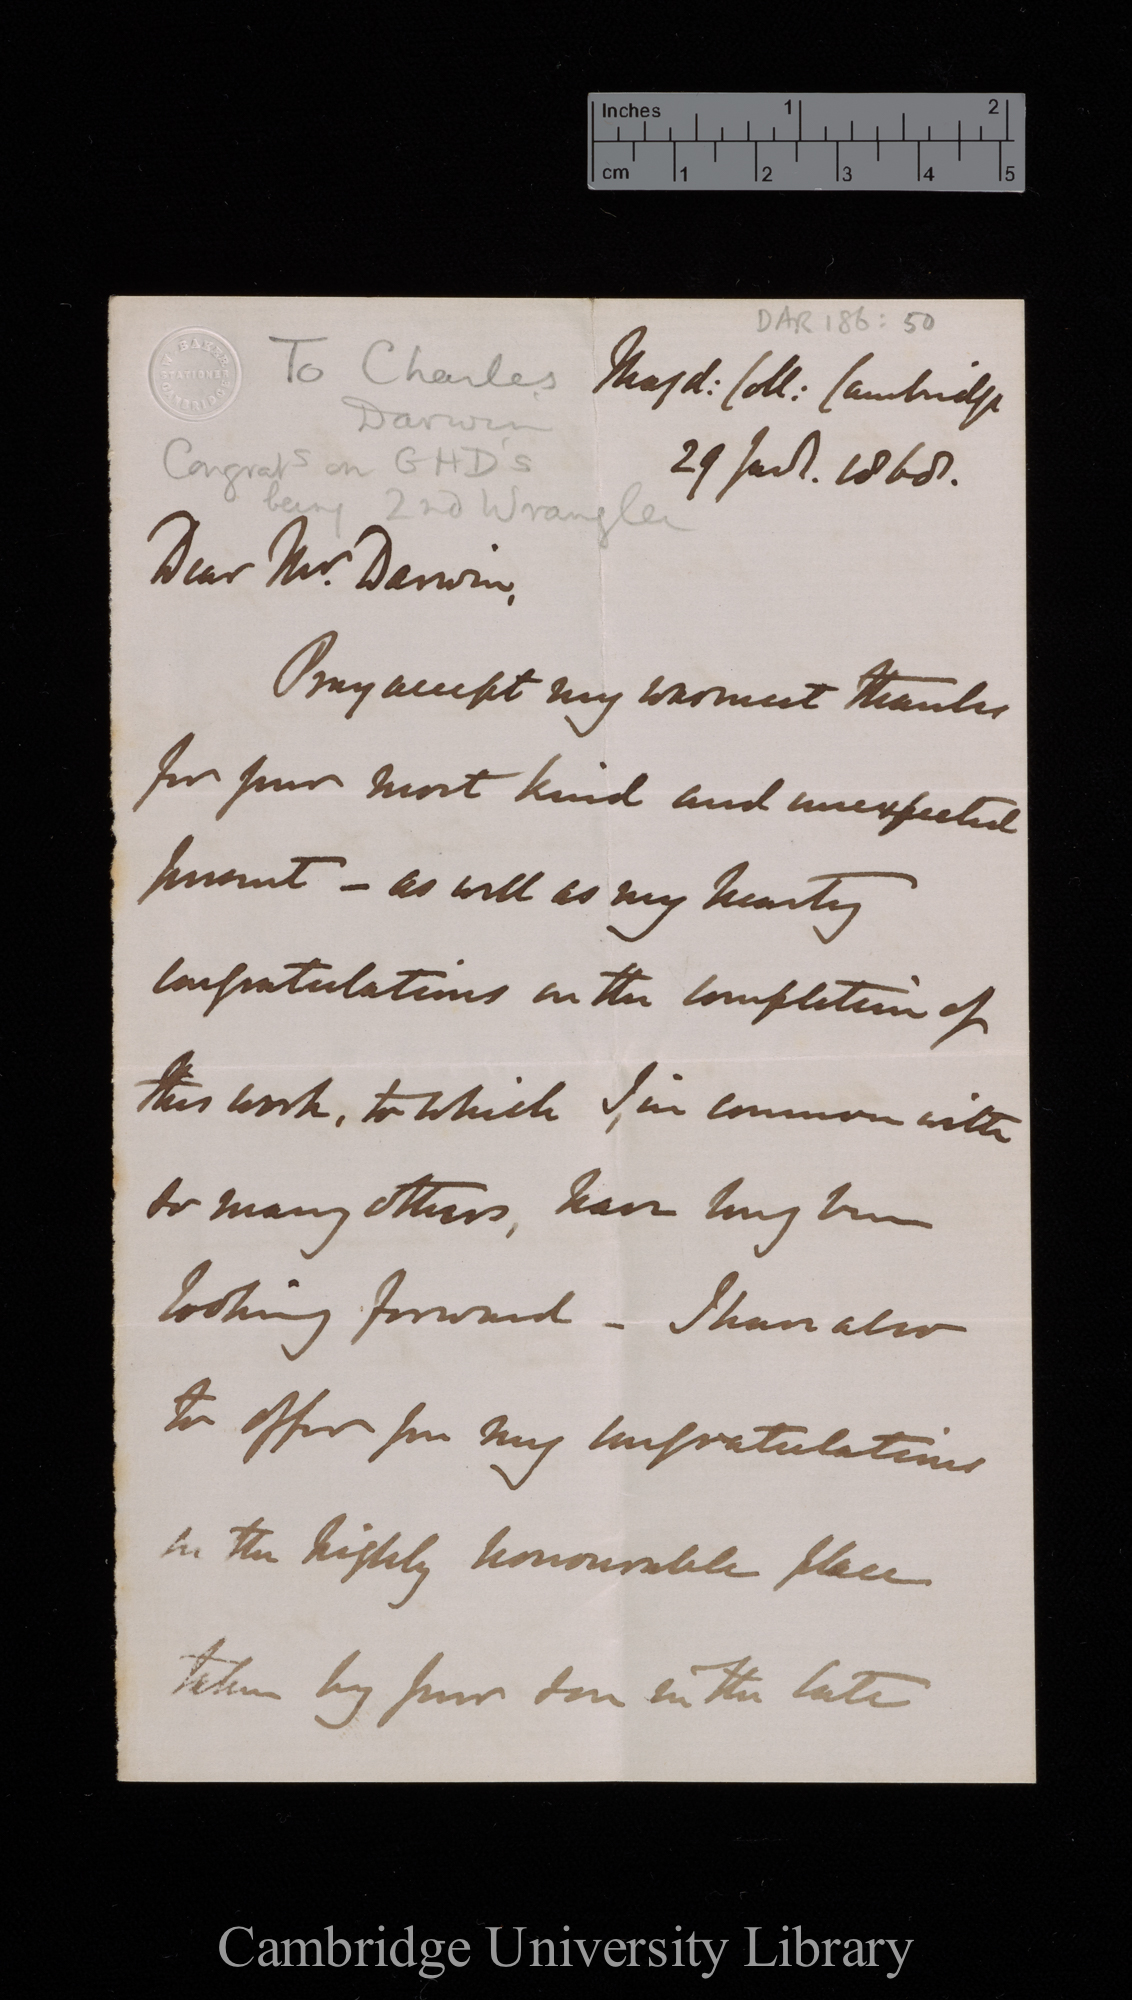 Inches 1 2
cm 1 2 3 4 5
DAR 186: 50
W BAKER
STATIONER
CAMBRIDGE
To Charles
Darwin
Congrats on GHD's
being 2nd Wrangler
Magd: Coll: Cambridge
29 Jany. 1868.
Dear Mr. Darwin,
Pray accept my warmest thanks
for your most kind and unexpected
present – as well as my hearty
congratulations on the completion of
this work, to which I, in common with
so many others, have long been
looking forward – I have also
to offer you my congratulations
on the highly honourable place
taken by your son in the late
Cambridge University Library